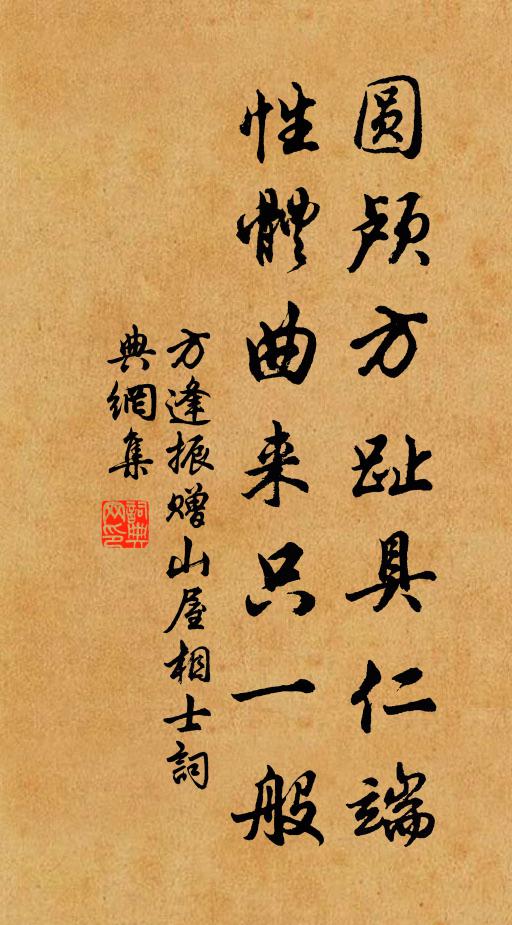 圆颅方趾具仁端
性體曲来只一般
方逢振赠山屋相士詞
典網集
詞典
网印